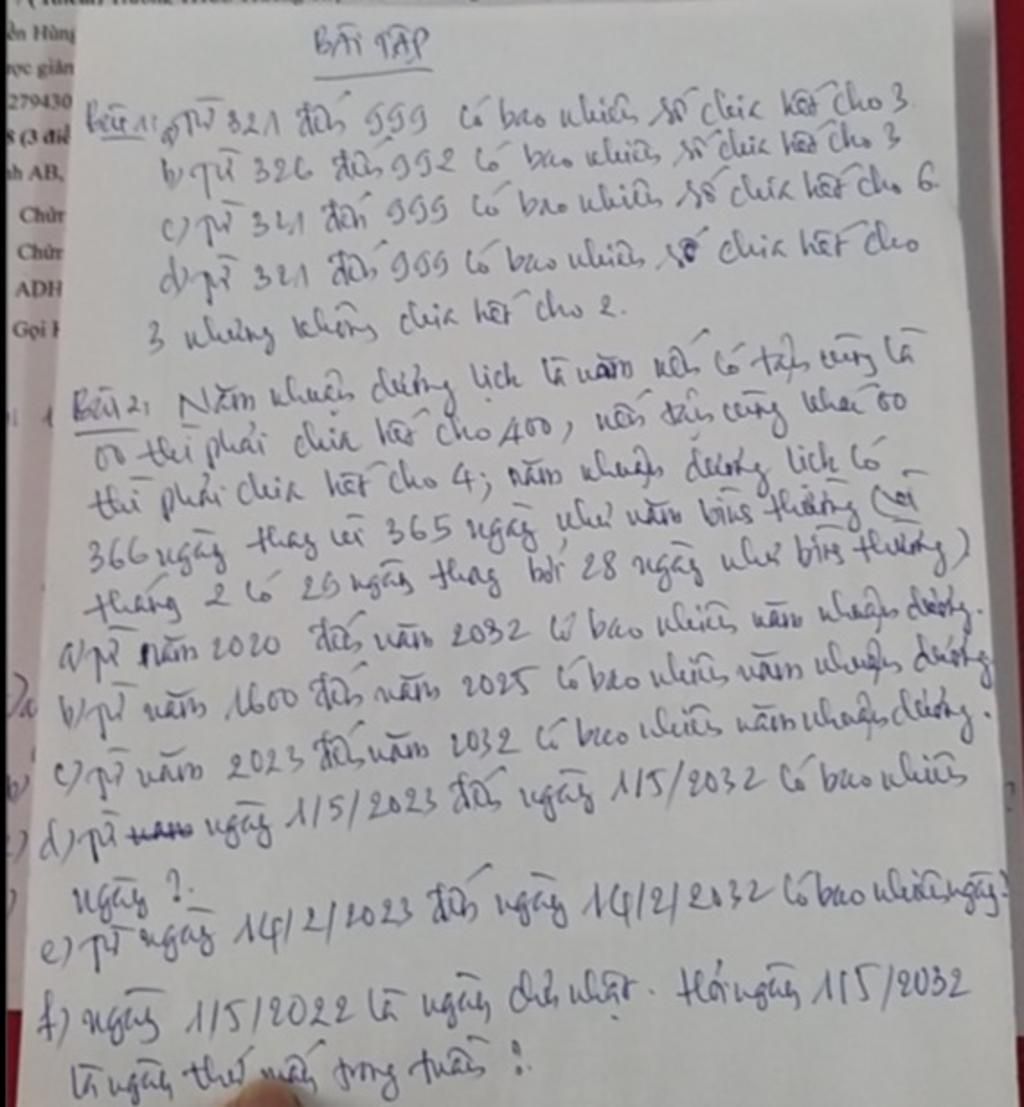 ển Hùng
ợc giản
279430
8 (3 điể
nh AB,
Chứn
Chứn
ADH
Gọi H
BÀI TẬP
Bài 1: a) Từ 321 đến 999 có bao nhiêu số chia hết cho 3
b) Từ 326 đến 992 có bao nhiêu số chia hết cho 3
c) Từ 321 đến 999 có bao nhiêu số chia hết cho 6
d) Từ 321 đến 999 có bao nhiêu số chia hết cho
3 nhưng không chia hết cho 2.
Bài 2: Năm nhuận dương lịch là năm nếu có tận cùng là
00 thì phải chia hết cho 400, nếu tận cùng khác 00
thì phải chia hết cho 4; năm nhuận dương lịch có
366 ngày thay vì 365 ngày như năm bình thường (vì
tháng 2 có 29 ngày thay bởi 28 ngày như bình thường)
a) Từ năm 2020 đến năm 2032 có bao nhiêu năm nhuận dương.
b) Từ năm 1600 đến năm 2025 có bao nhiêu năm nhuận dương
c) Từ năm 2023 đến năm 2032 có bao nhiêu năm nhuận dương.
d) Từ ngày 1/5/2023 đến ngày 1/5/2032 có bao nhiêu
ngày?.
e) Từ ngày 14/2/2023 đến ngày 14/2/2032 có bao nhiêu ngày?
f) Ngày 1/5/2022 là ngày chủ nhật. Hỏi ngày 1/5/2032
là ngày thứ mấy trong tuần?